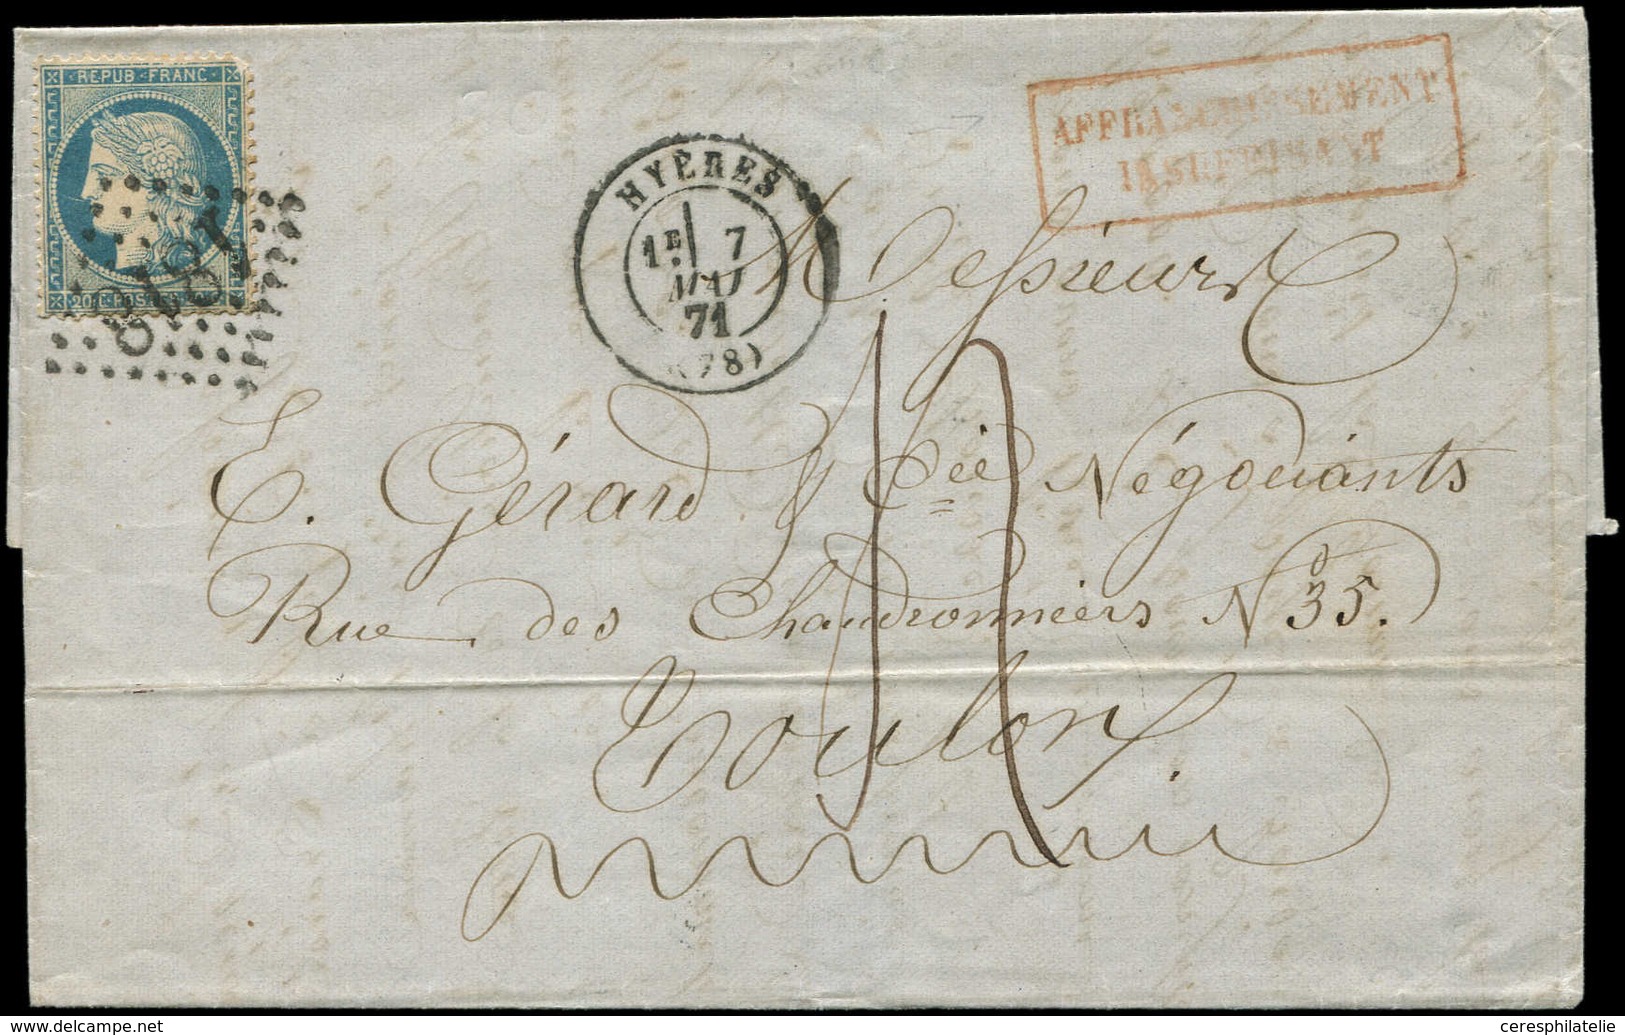 REPUB·FRANC
20 c POSTES 20 c
1878
HYÈRES
1E 7
MAI
71
(78)
AFFRANCHISSEMENT
INSUFFISANT
Messieurs
E. Gérard & Cie Négociants
Rue des Chaudronniers No 35.
Toulon
ceresphilatelie - www.delcampe.net